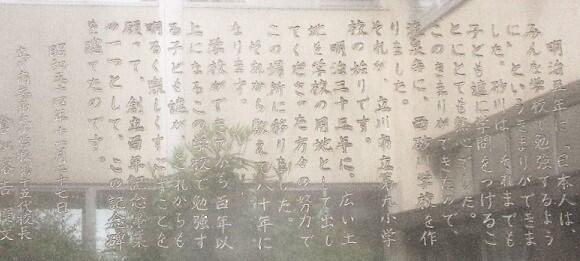 明治五年に、「日本人は、
みんな学校で勉強するよう
に」というきまりができま
した。砂川は、それまでも
子ども達に学問をつけるこ
とにとても熱心でした。
このきまりができたので、
流泉寺に、西砂川学校を作
りました。
それが、立川市立第九小学
校の始りです。
明治三十三年に、広い土
地を学校の用地として出し
てくださった方々の努力で
この場所に移りました。
それから数えて八十年に
なります。
学校ができてから百年以
上になるこの学校で勉強す
る子ども達が、これからも
明るく楽しくすごすことを
願って、創立百年記念事業
の一つとして、この記念碑
を建てたのです。
昭和五十四年十二月二十七日